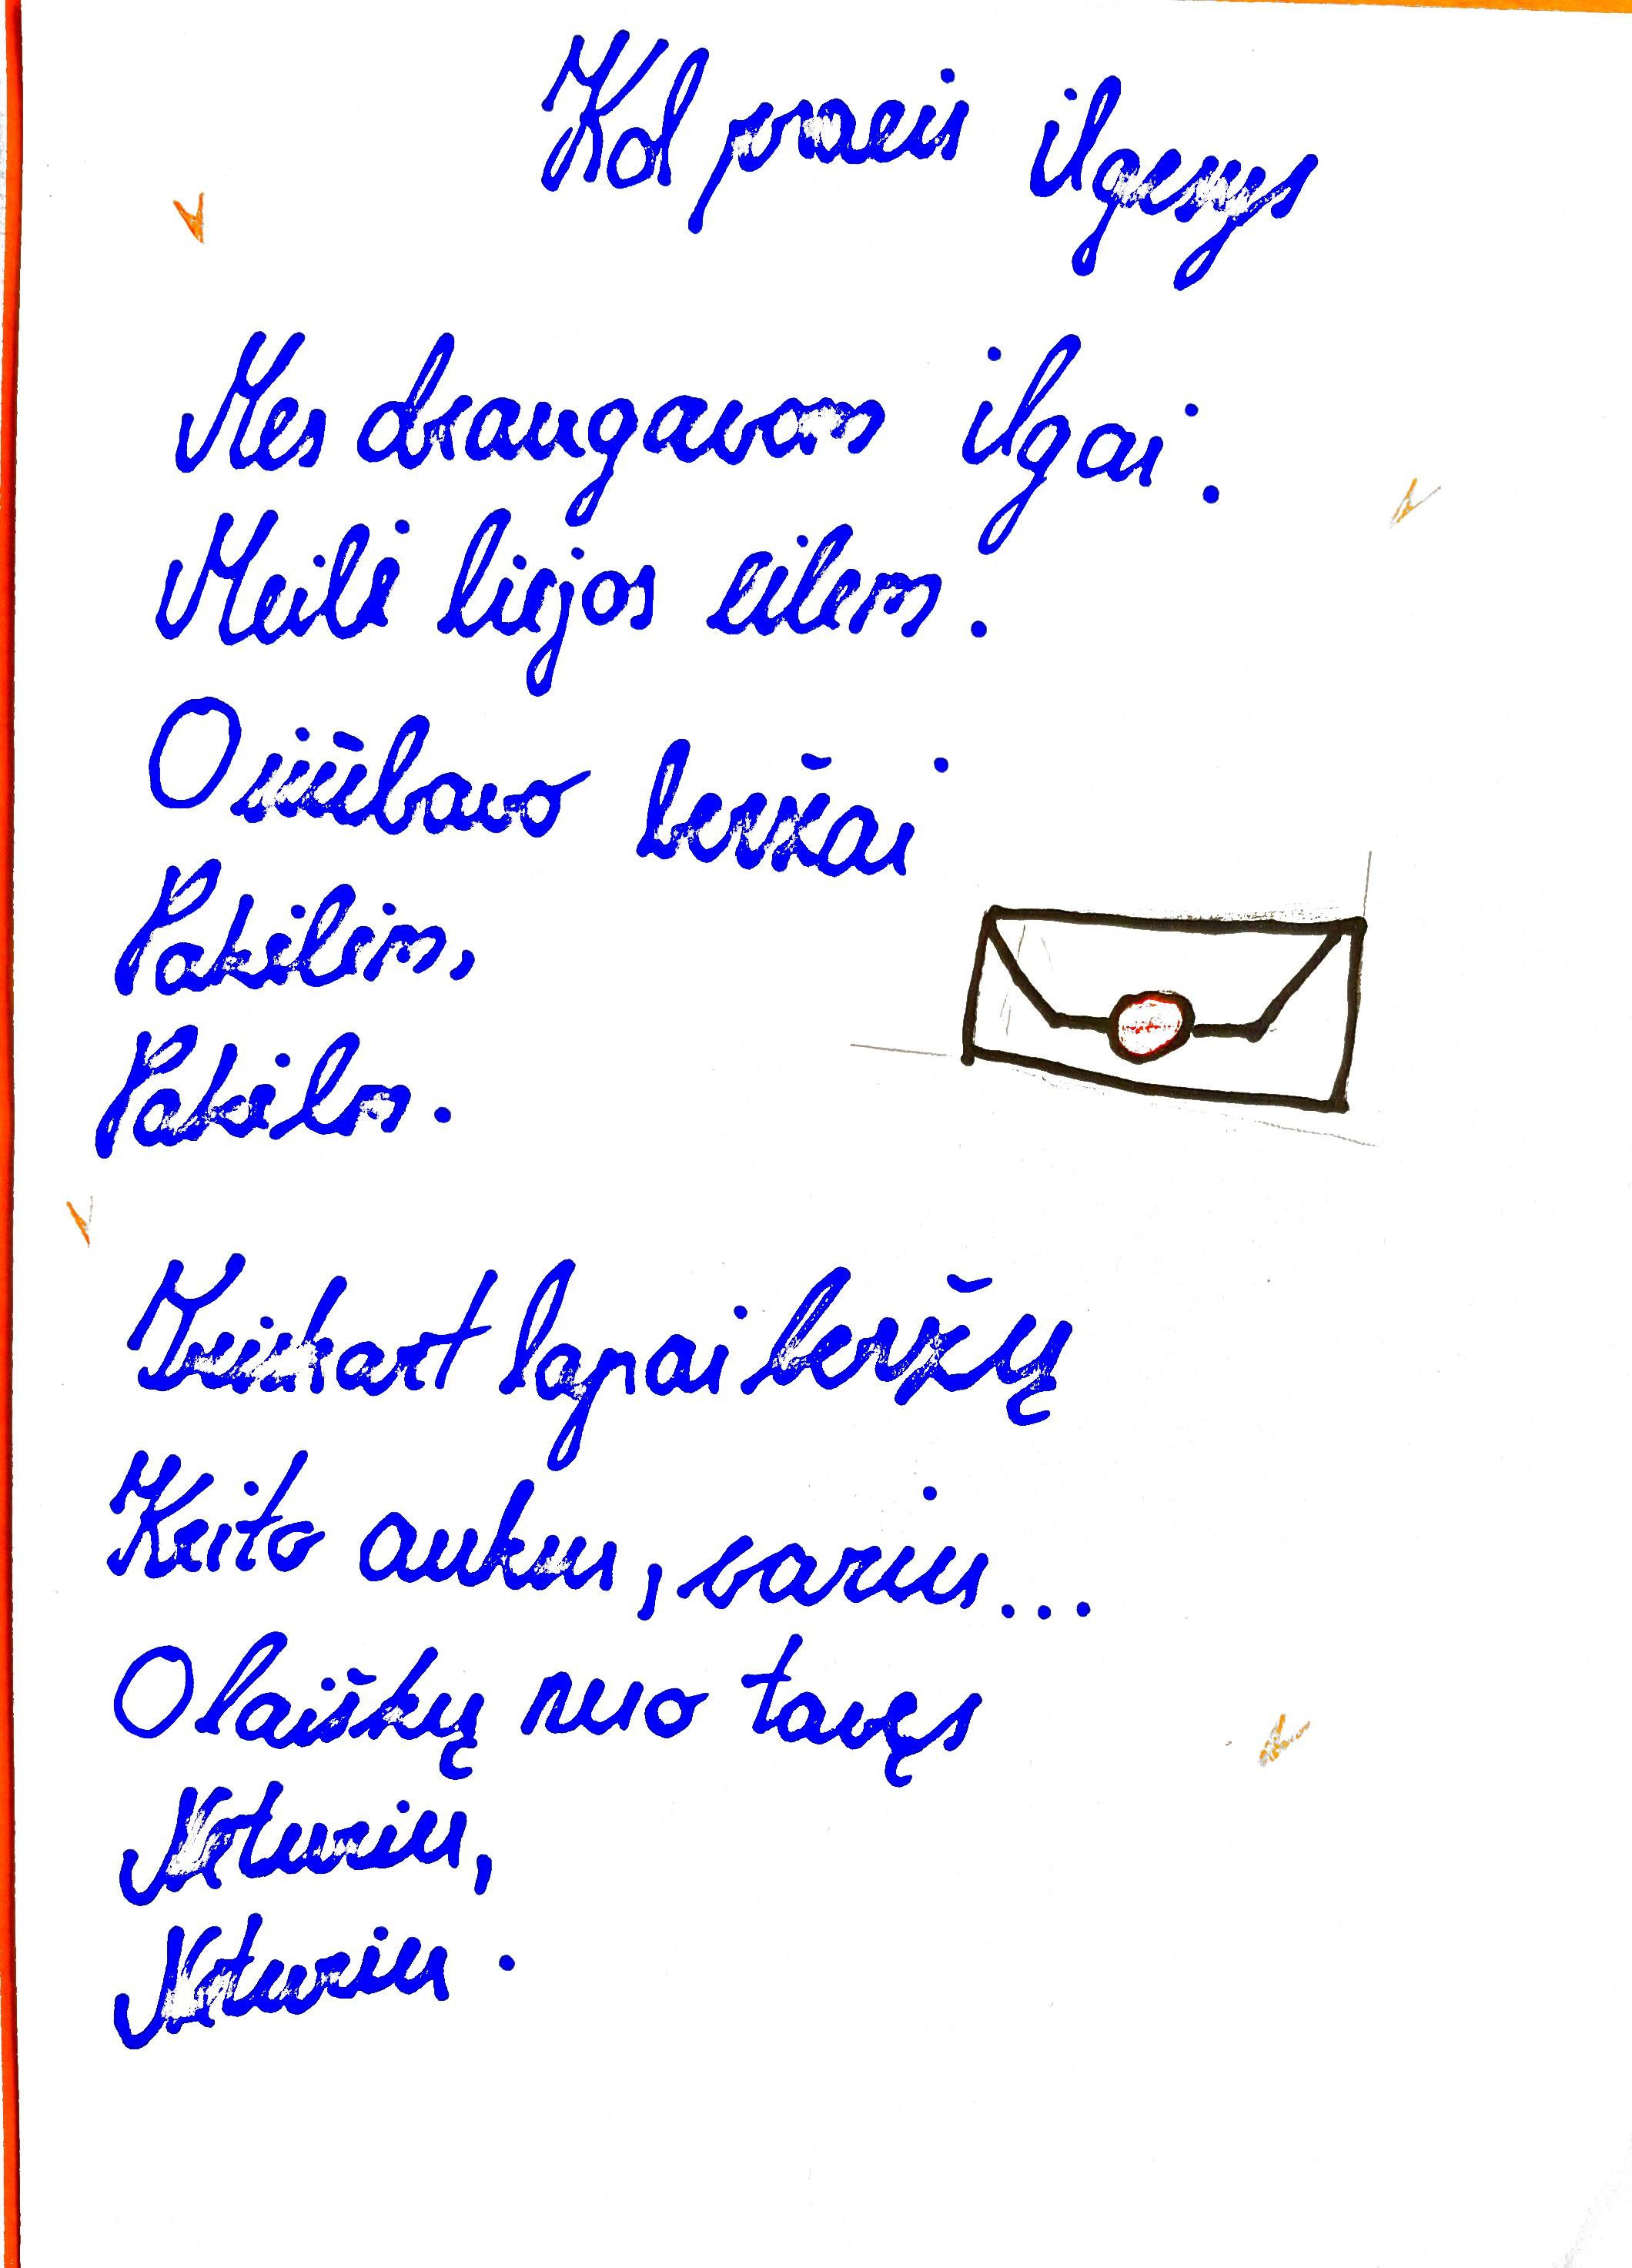 Kol praeis ilgesys
Mes draugavom ilgai.
Meilė liejos eilėm.
O siūbavo beržai
Pakilim,
Pakilom.
lapai beržų
Keito auksus, varius...
O laiškų nuo tavęs
Neturiu,
Neturiu.